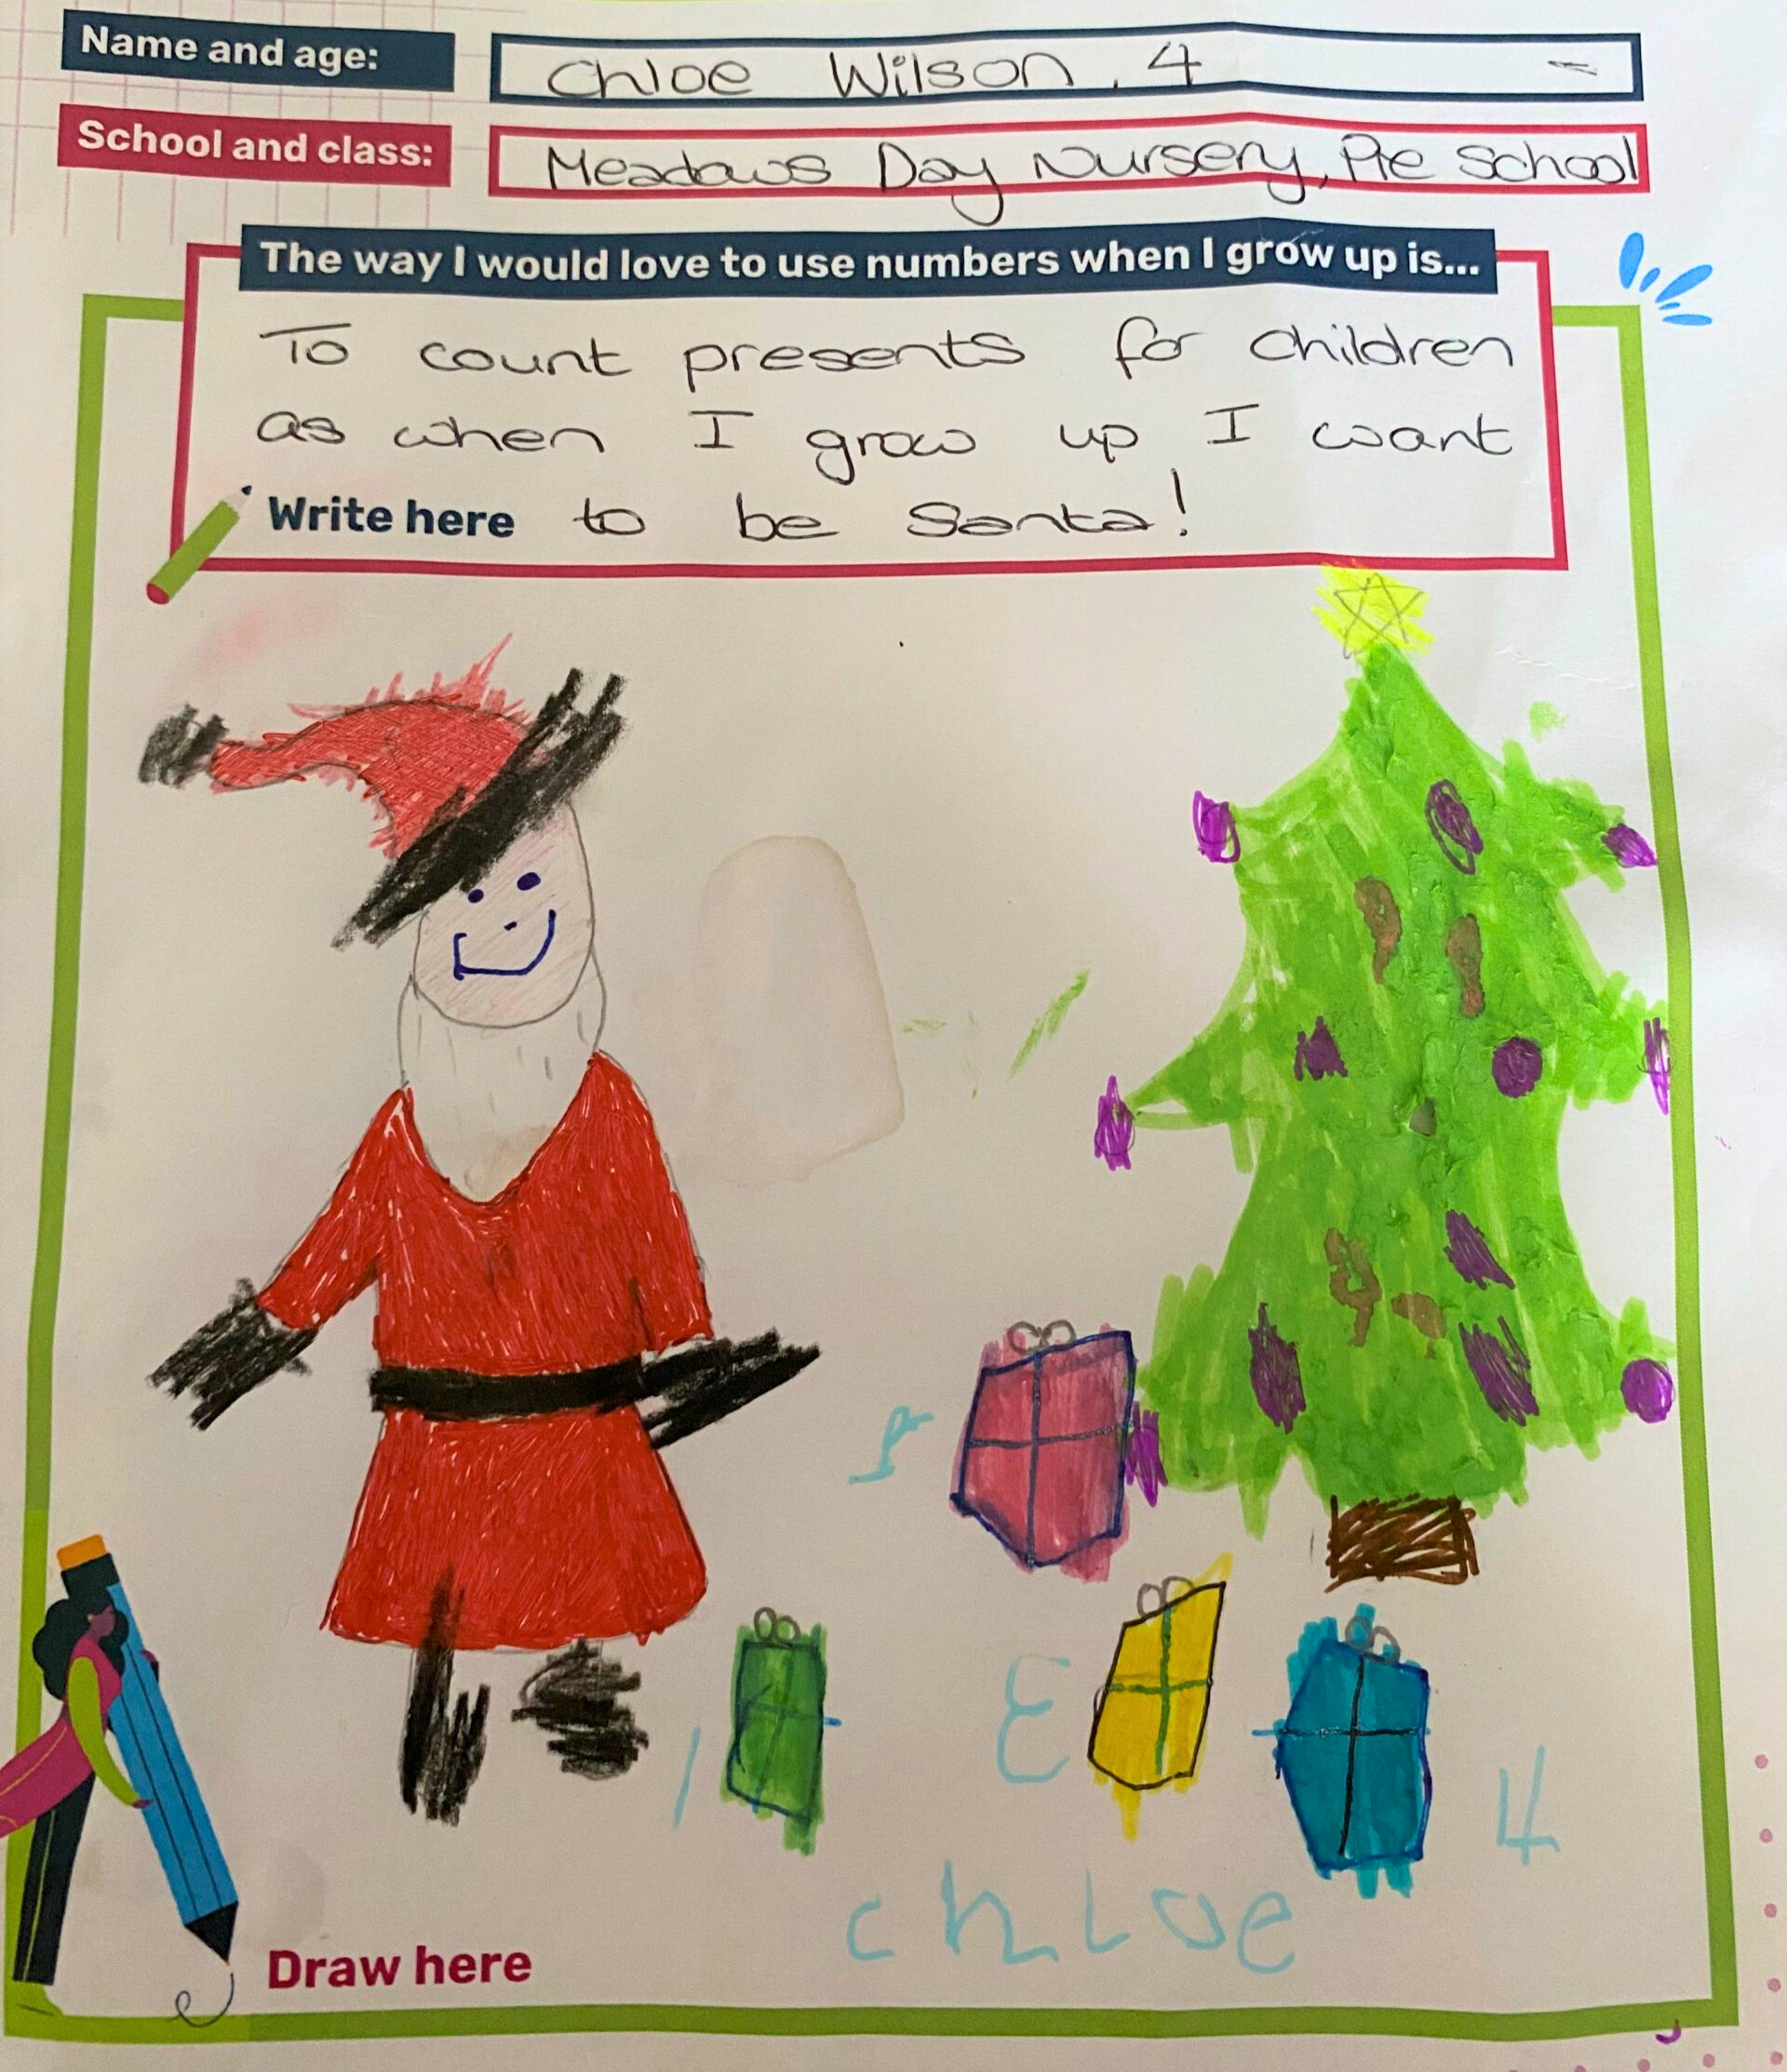 Name and age: Chloe Wilson, 4
School and class: Meadows Day Nursery, Pre School
The way I would love to use numbers when I grow up is...
To count presents for children
as when I grow up I want
Write here to be Santa!
1 3 4
chloe
Draw here